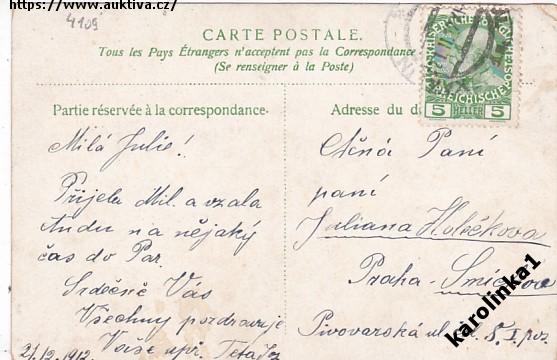 https://www.auktiva.cz/
4109
CARTE POSTALE.
Tous les Pays Étrangers n'acceptent pas la Correspondance
(Se renseigner à la Poste)
Partie réservée à la correspondance.
Milá Julie!
Přijela Mil. a vzala
Andu na nějaký
čas do Par.
Srdečně Vás
Všechny pozdravuje
Vaše upř. Teta
21/12.1912.
Adresse du d
Ctěná Paní
paní
Juliana
Praha - Smíchov
Pivovarská ul.
5 HELLER 5
karolinka1